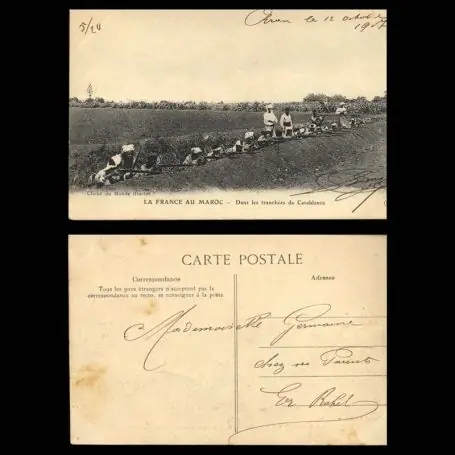 5/20
le 12 octobre
1907
Cliché du Monde Illustré
LA FRANCE AU MAROC – Dans les tranchées de Casablanca
CARTE POSTALE
Correspondance
Tous les pays étrangers n'acceptent pas la
correspondance au recto, se renseigner à la poste
Adresse
Mademoiselle Germaine
chez ses Parents